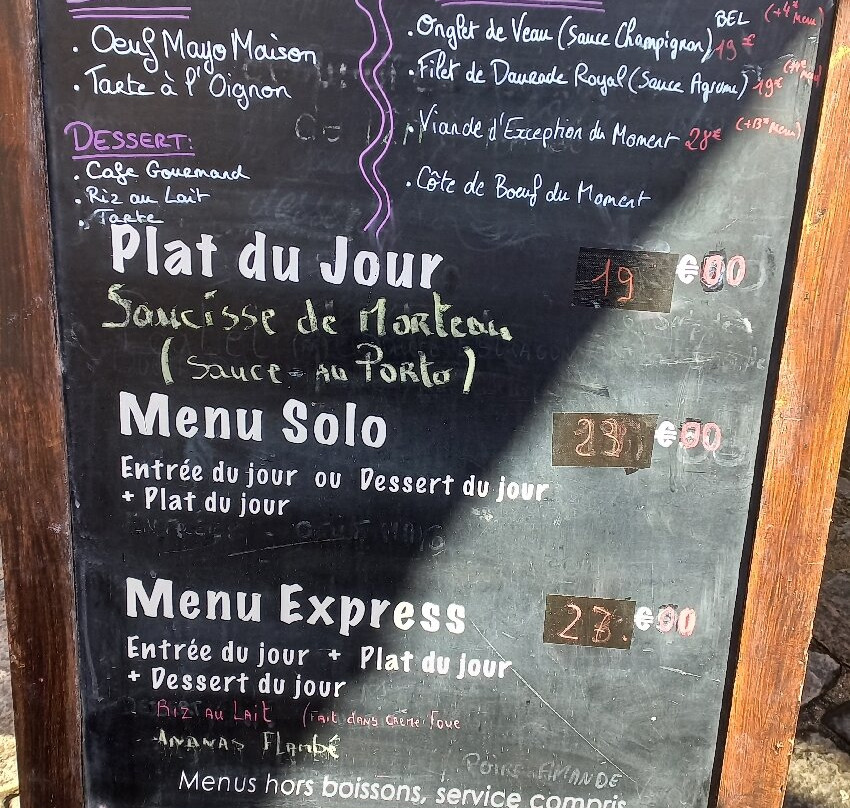 . Oeuf Mayo Maison
. Tarte à l'Oignon
DESSERT:
. Cafe Gourmand
. Riz au Lait
. Tarte
BEL (+4€ Menu)
. Onglet de Veau (Sauce Champignon) 19€
. Filet de Daurade Royal (Sauce Agrume) 19€
. Viande d'Exception du Moment 28€ (+13€ Menu)
. Côte de Boeuf du Moment
Plat du Jour 19 €00
Saucisse de Morteau
(Sauce au Porto)
Menu Solo 23 €00
Entrée du jour ou Dessert du jour
+ Plat du jour
Menu Express 27. €00
Entrée du jour + Plat du jour
+ Dessert du jour
RIZ AU LAIT (FAIT DANS CREME
ANANAS Flambé
POIRE AMANDE
Menus hors boissons, service compris